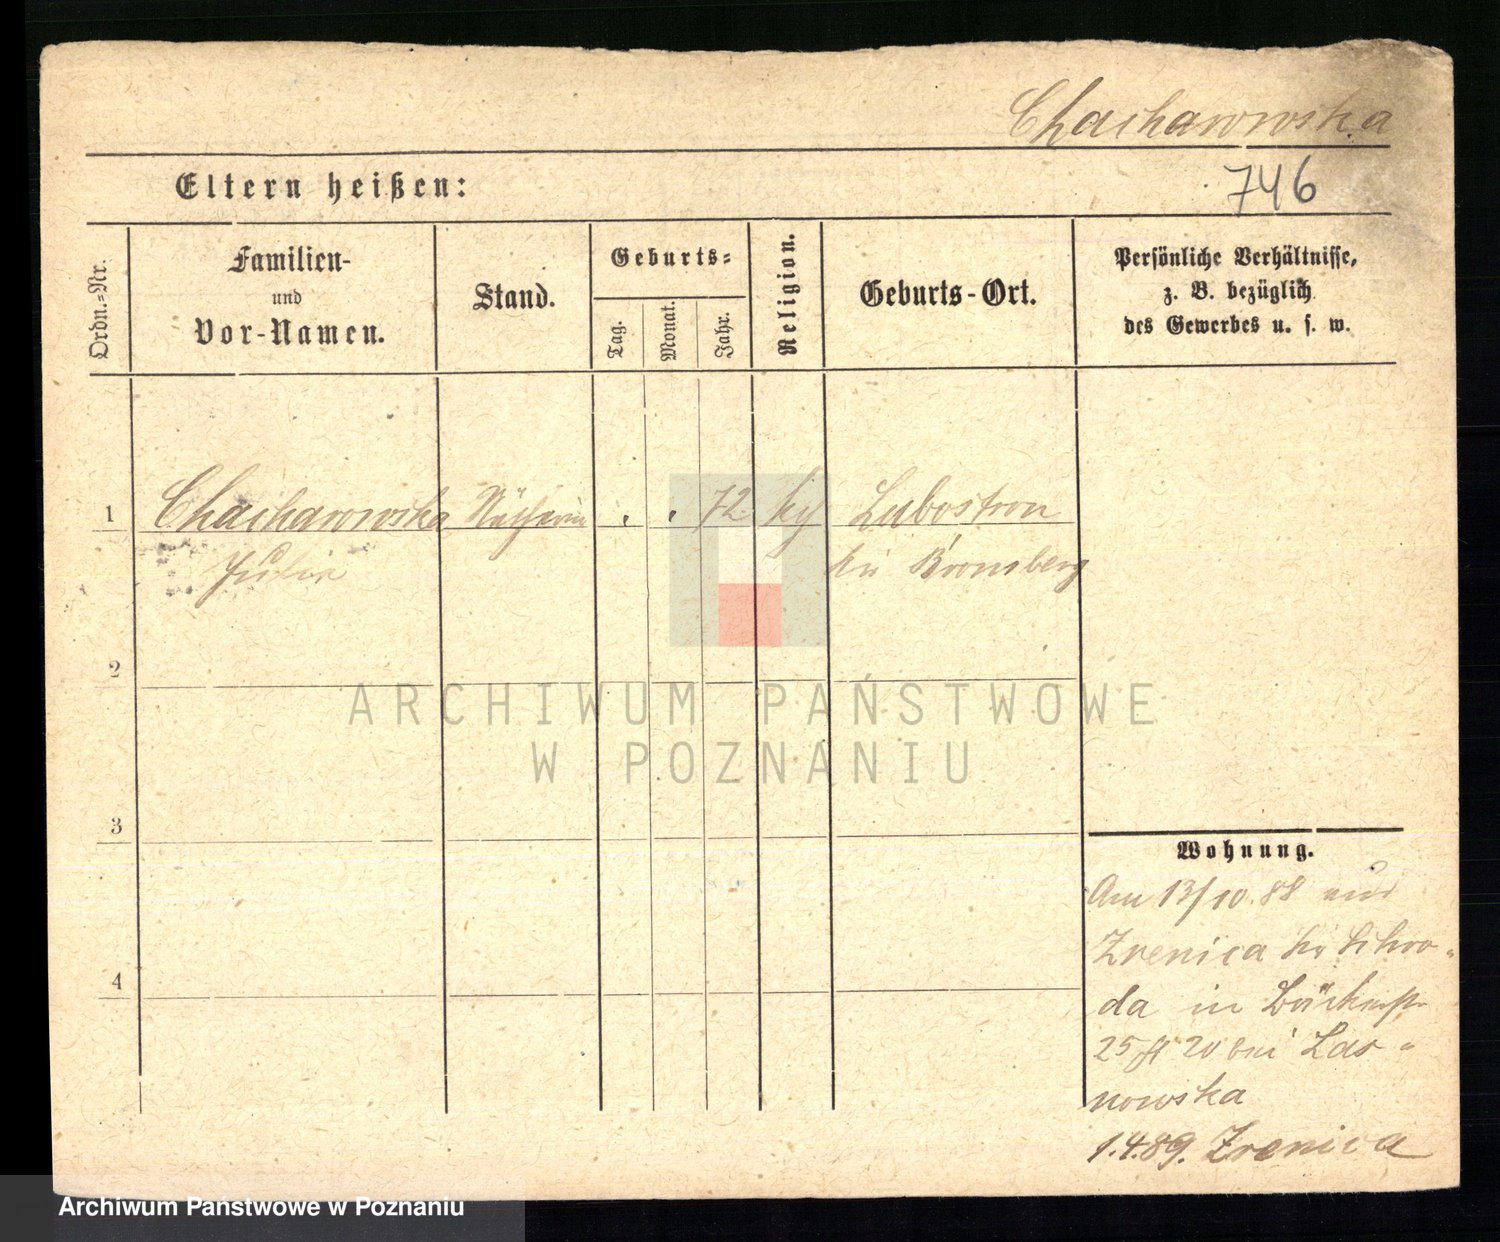 Chacharowska
746
Eltern heißen:
Ordn.=Nr.
Familien-
und
Vor-Namen.
Stand.
Geburts=
Tag.
Monat.
Jahr.
Religion.
Geburts-Ort.
Persönliche Verhältnisse,
z. B. bezüglich
des Gewerbes u. s. w.
1
Chacharowska Nätherin . . 72 Lubostron
Julie
bei Bromberg
2
3
4
Wohnung.
Am 13/10.88 aus
Zrenica Schro-
da in Bäckerstr
25 20 bei Las-
nowska
1.4.89. Zrenica
ARCHIWUM PAŃSTWOWE
W POZNANIU
Archiwum Państwowe w Poznaniu